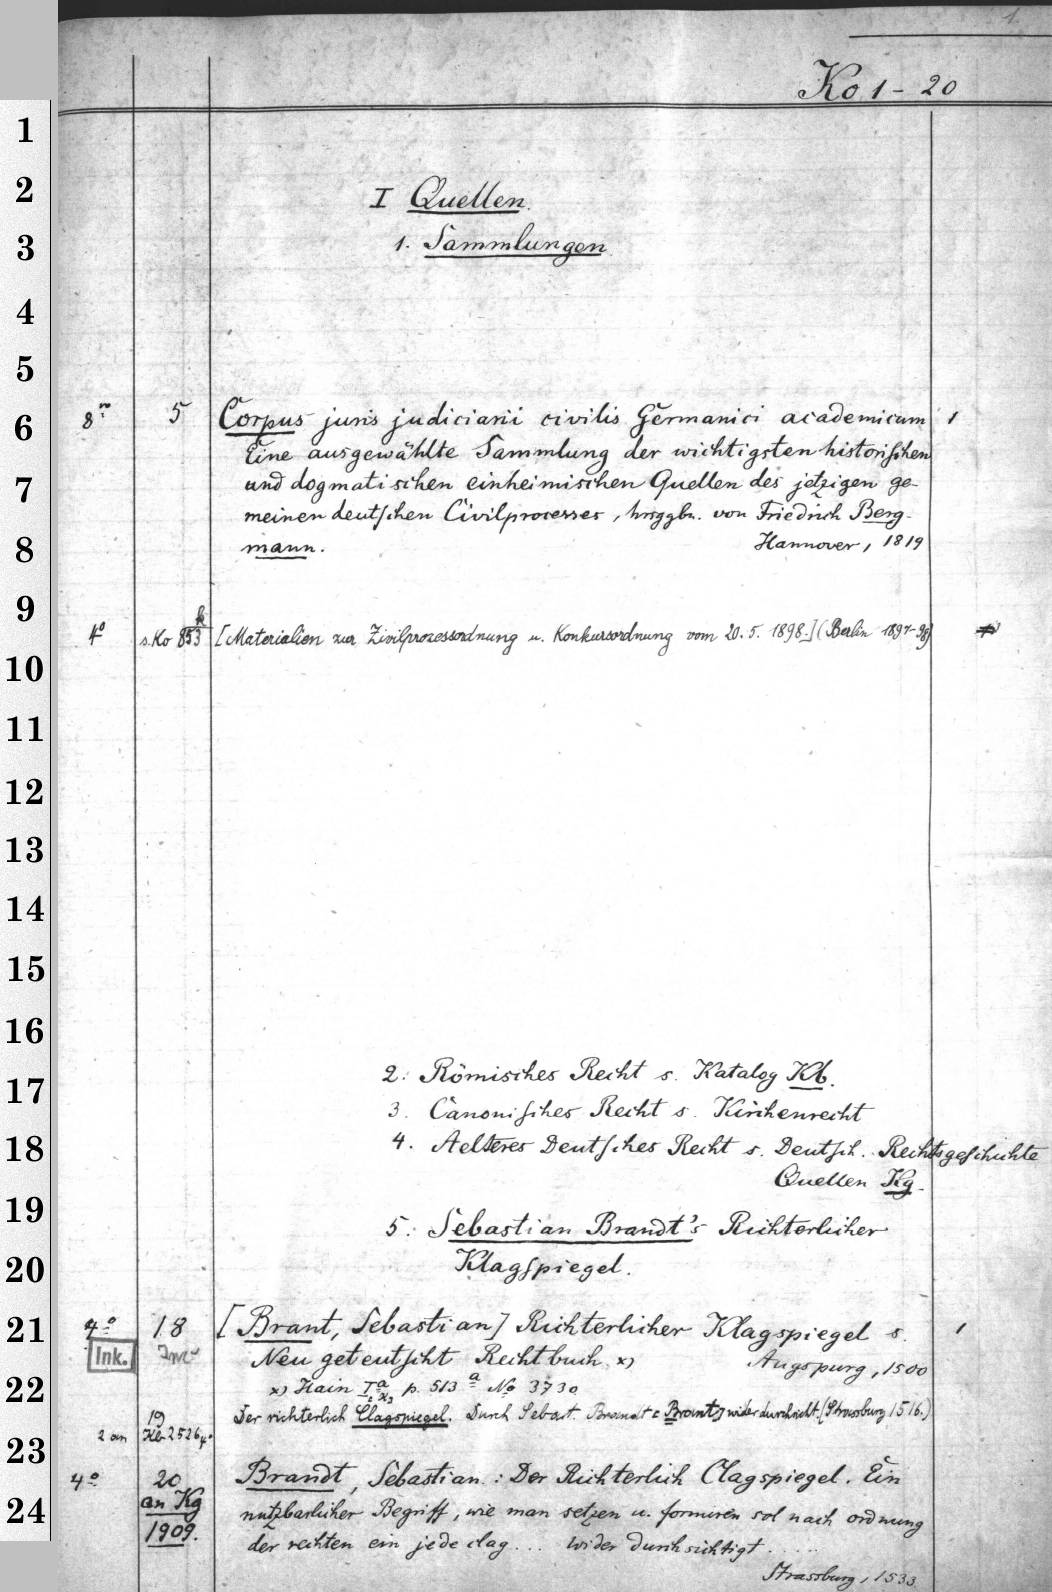 1
Ko 1 - 20
1
2
I Quellen.
3
1. Sammlungen
4
5
6
8° 5 Corpus juris judiciarii civilis Germanici academicum 1
Eine ausgewählte Sammlung der wichtigsten historischen
7
und dogmatischen einheimischen Quellen des jetzigen ge-
meinen deutschen Civilprocesses, hrsggbn. von Friedrich Berg-
8
mann. Hannover, 1819
9
4° s. Ko 853 [Materialien zur Zivilprozessordnung u. Konkursordnung vom 20. 5. 1898.] (Berlin 1897-98)
10
11
12
13
14
15
16
17
2. Römisches Recht s. Katalog Kb.
3. Canonisches Recht s. Kirchenrecht
18
4. Aelteres Deutsches Recht s. Deutsch. Rechtsgeschichte
Quellen Kg.
19
5. Sebastian Brandt's Richterlicher
20
Klagspiegel.
21
4° 18 [Brant, Sebastian] Richterlicher Klagspiegel s. 1
Ink. Neu geteutscht Rechtbuch. x) Augspurg, 1500
22
x) Hain p. 513 No 3730
19 Der richterlich Clagspiegel. Durch Sebast. Brandt [Brant] wider durchsicht. [Strassburg 1516.)
2 an Kb 2526
23
4° 20 Brandt, Sebastian: Der Richterlich Clagspiegel. Ein
24
an Kg nutzbarlicher Begriff, wie man setzen u. formiren sol nach ordnung
1909. der rechten ein jede clag... wider durchsichtigt....
Strassburg, 1533